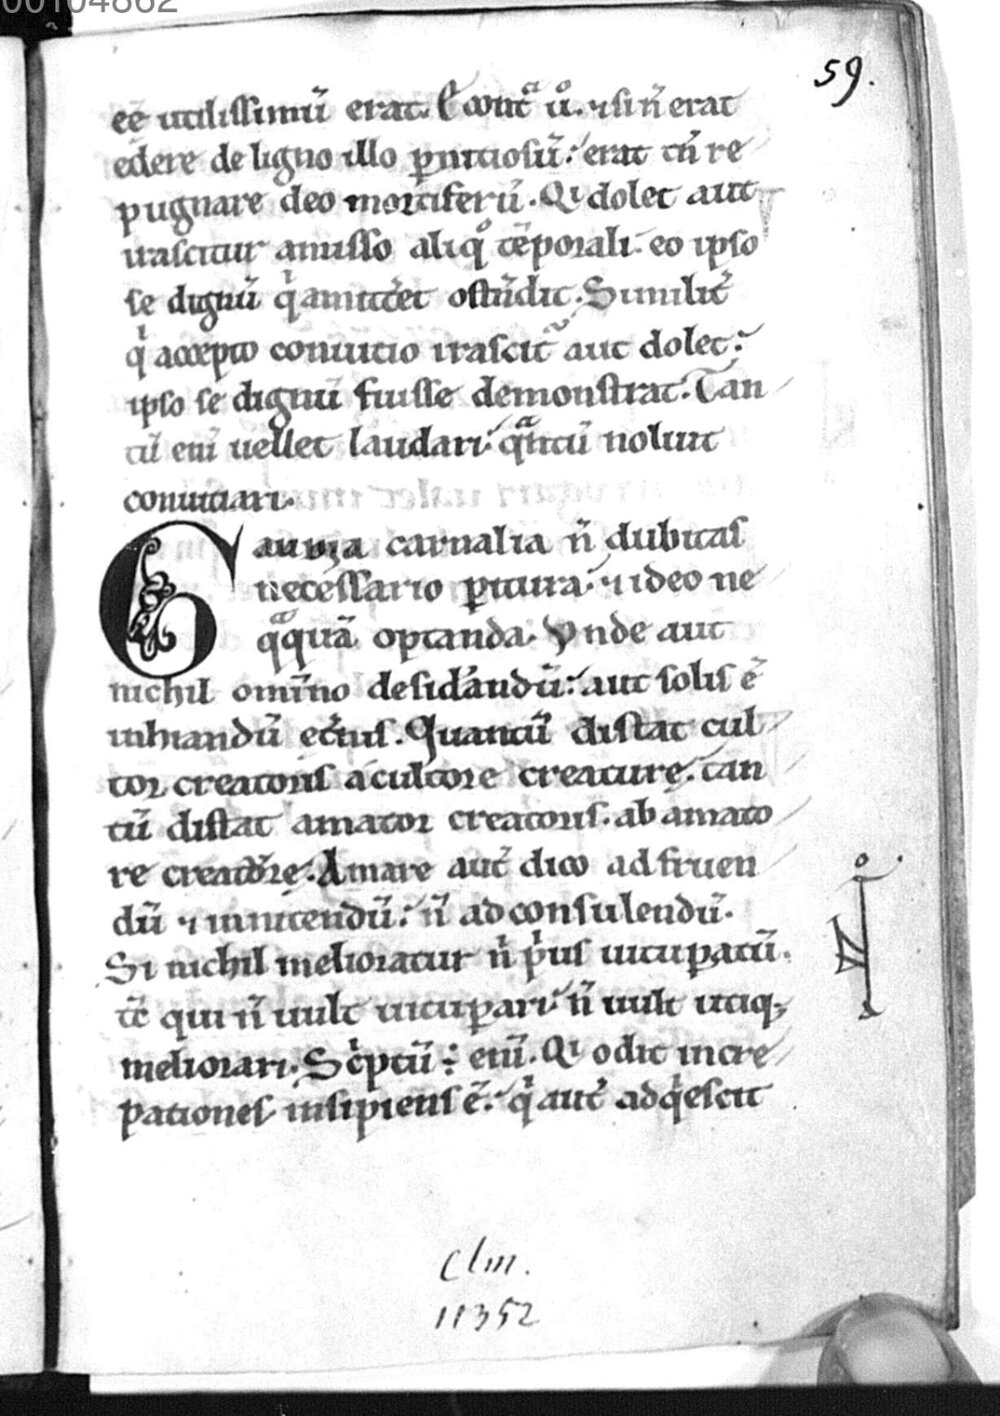 00104862
59.
eē utilissimū erat. Econtᵃ ůͦ. ⁊si n̄ erat
edere de ligno illo ꝑnitiosū. erat tn̄ re
pugnare deo mortiferū. Qi dolet aut
irascitur amisso aliqͦ tēporali. eo ipso
se dignū qͥ amitt̄et ostn̄dit. Similit̄
qͥ accepto conuitio irascit᷑ aut dolet.
ipso se dignū fuisse demonstrat. Tan
tū eni uellet laudari. qᵃntū noluit
conuitiari.
Gaudia carnalia n̄ dubitas
necessario ꝑitura. ⁊ ideo ne
qᵃquā optanda. Vnde aut
nichil omīno desid̄andū. aut solis ē
inhiandū et̄nis. Quantū distat cul
tor creatoris a cultore creaturę. tan
tū distat amator creatoris. ab amato
re creat᷑ę. Amare aut̄ dico ad fruen
dū ⁊ innitendū. n̄ ad consulendū.
Si nichil melioratur nͥ pͥus uituꝑatū.
tc̄ qui n̄ uult uituꝑari. n̄ uult utiqꝫ
meliorari. Scͥptū ÷ eni. Qi odit incre
pationes insipiens ē. qͥ aut̄ adqͥescit
Clm.
11352